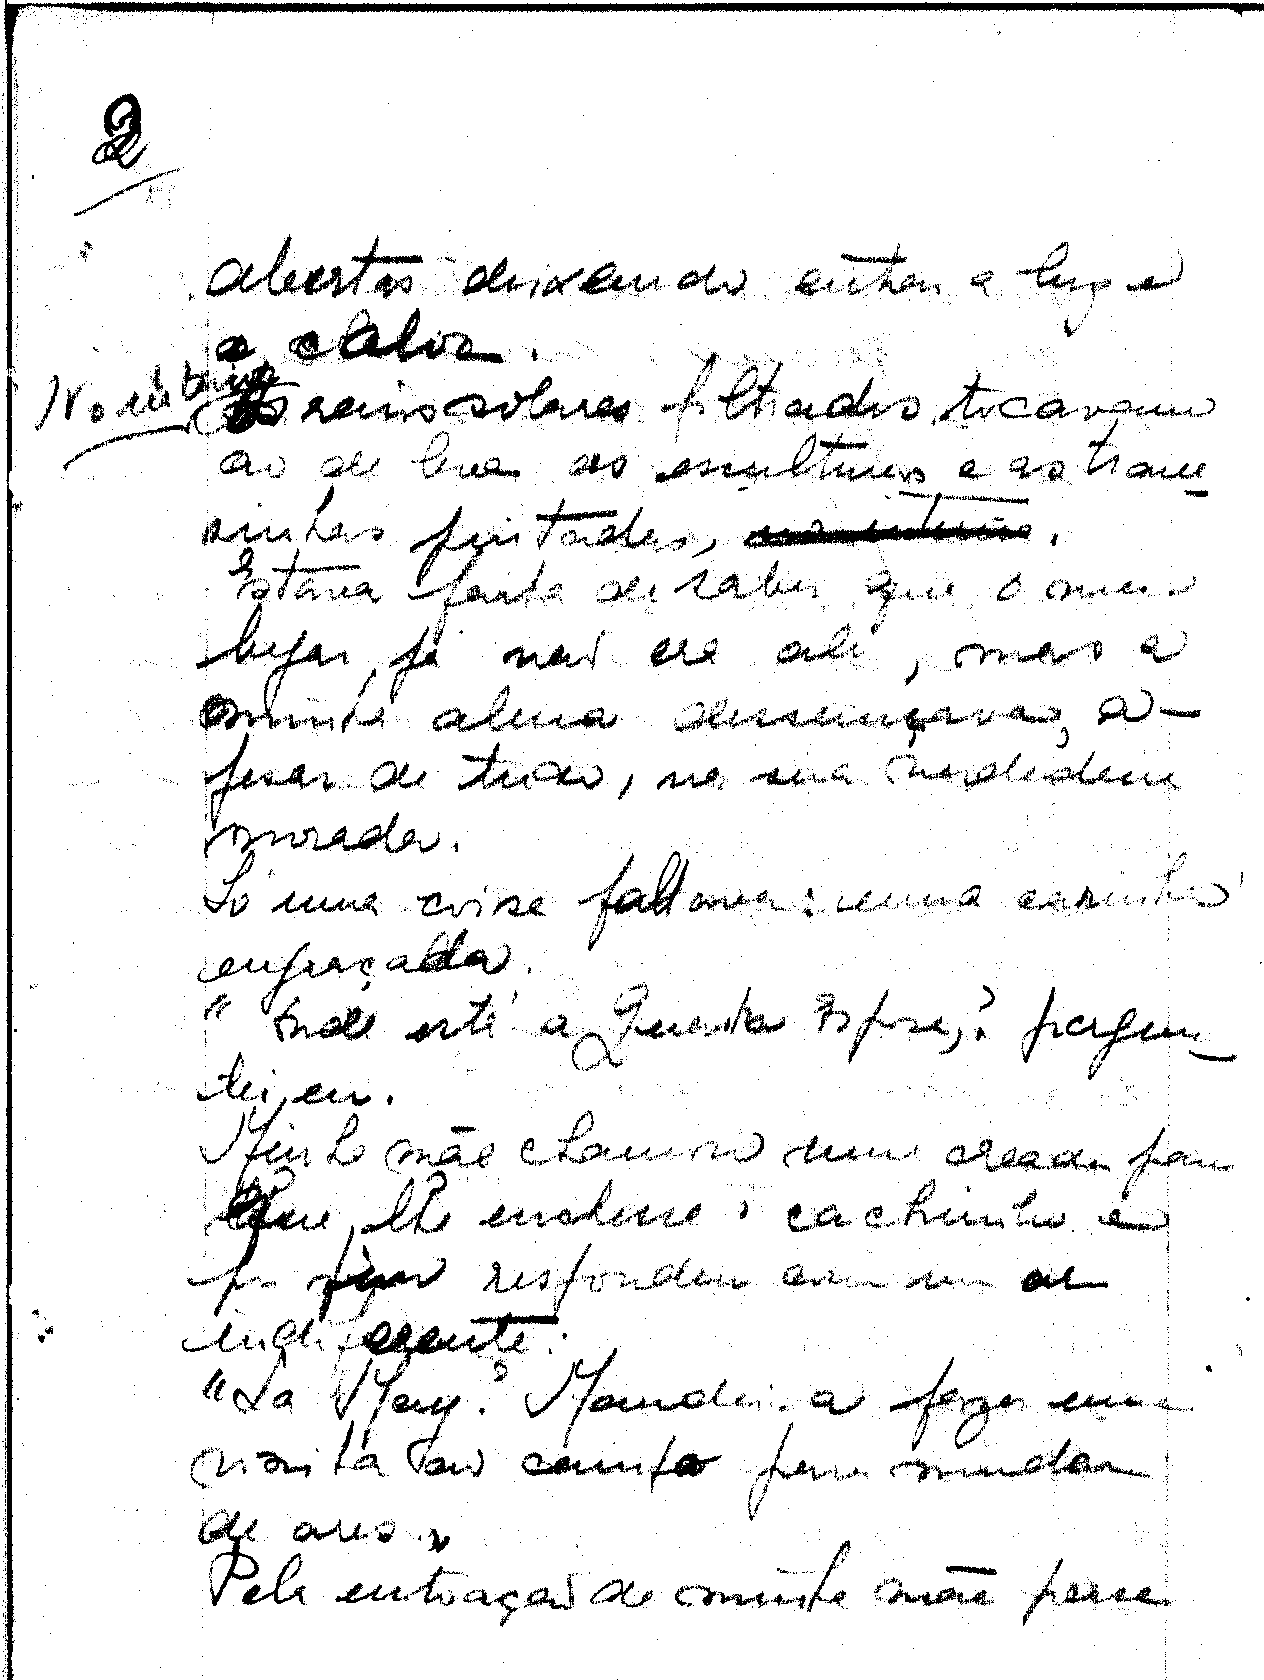 2
abertas deixando entrar a luz e
o calor.
No interior
Os raios solares filtrados, tocavam
ao de leve as esculturas e as trave
sinhas pintadas,
Estava farta de saber que o meu
lugar já não era ali, mas a
minha alma descançava, a-
pesar de tudo, na sua
morada.
Só uma coisa faltava: uma carinha
engraçada.
" Onde está a Quarta Esposa? pergun-
tei eu.
Minha mãe chamou uma creada para
que lhe enchesse o cachimbo e
por fim respondeu com um ar
indiferente:
"La May? Mandei-a fazer uma
visita ao campo para mudar
de ares."
Pela entoação de minha mãe perce